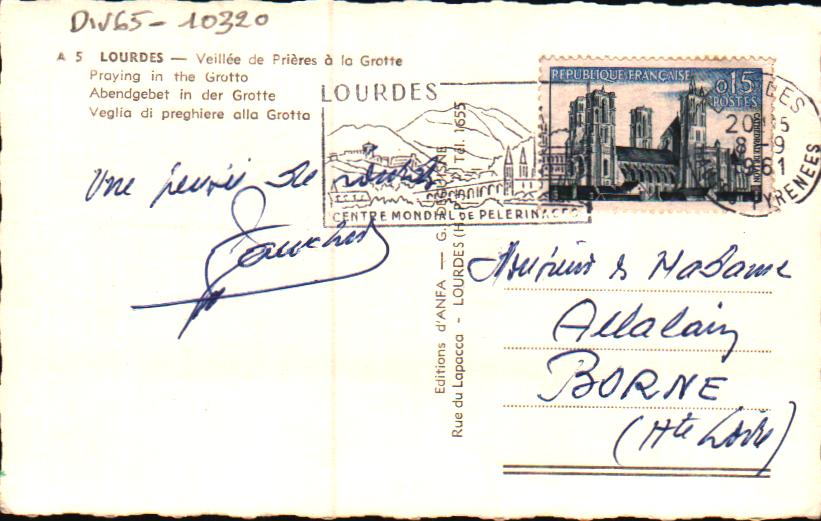 DIV65-10320
A 5 LOURDES — Veillée de Prières à la Grotte
Praying in the Grotto
Abendgebet in der Grotte
Veglia di preghiere alla Grotta
LOURDES
CENTRE MONDIAL DE PELERINAGES
REPUBLIQUE FRANÇAISE
0,15
POSTES
PYRENEES
Une pensée de
Editions d'ANFA — G.
Rue du Lapacca - LOURDES Tél. 1655
Monsieur & Madame
Allalain
BORNE
(Hte Loire)